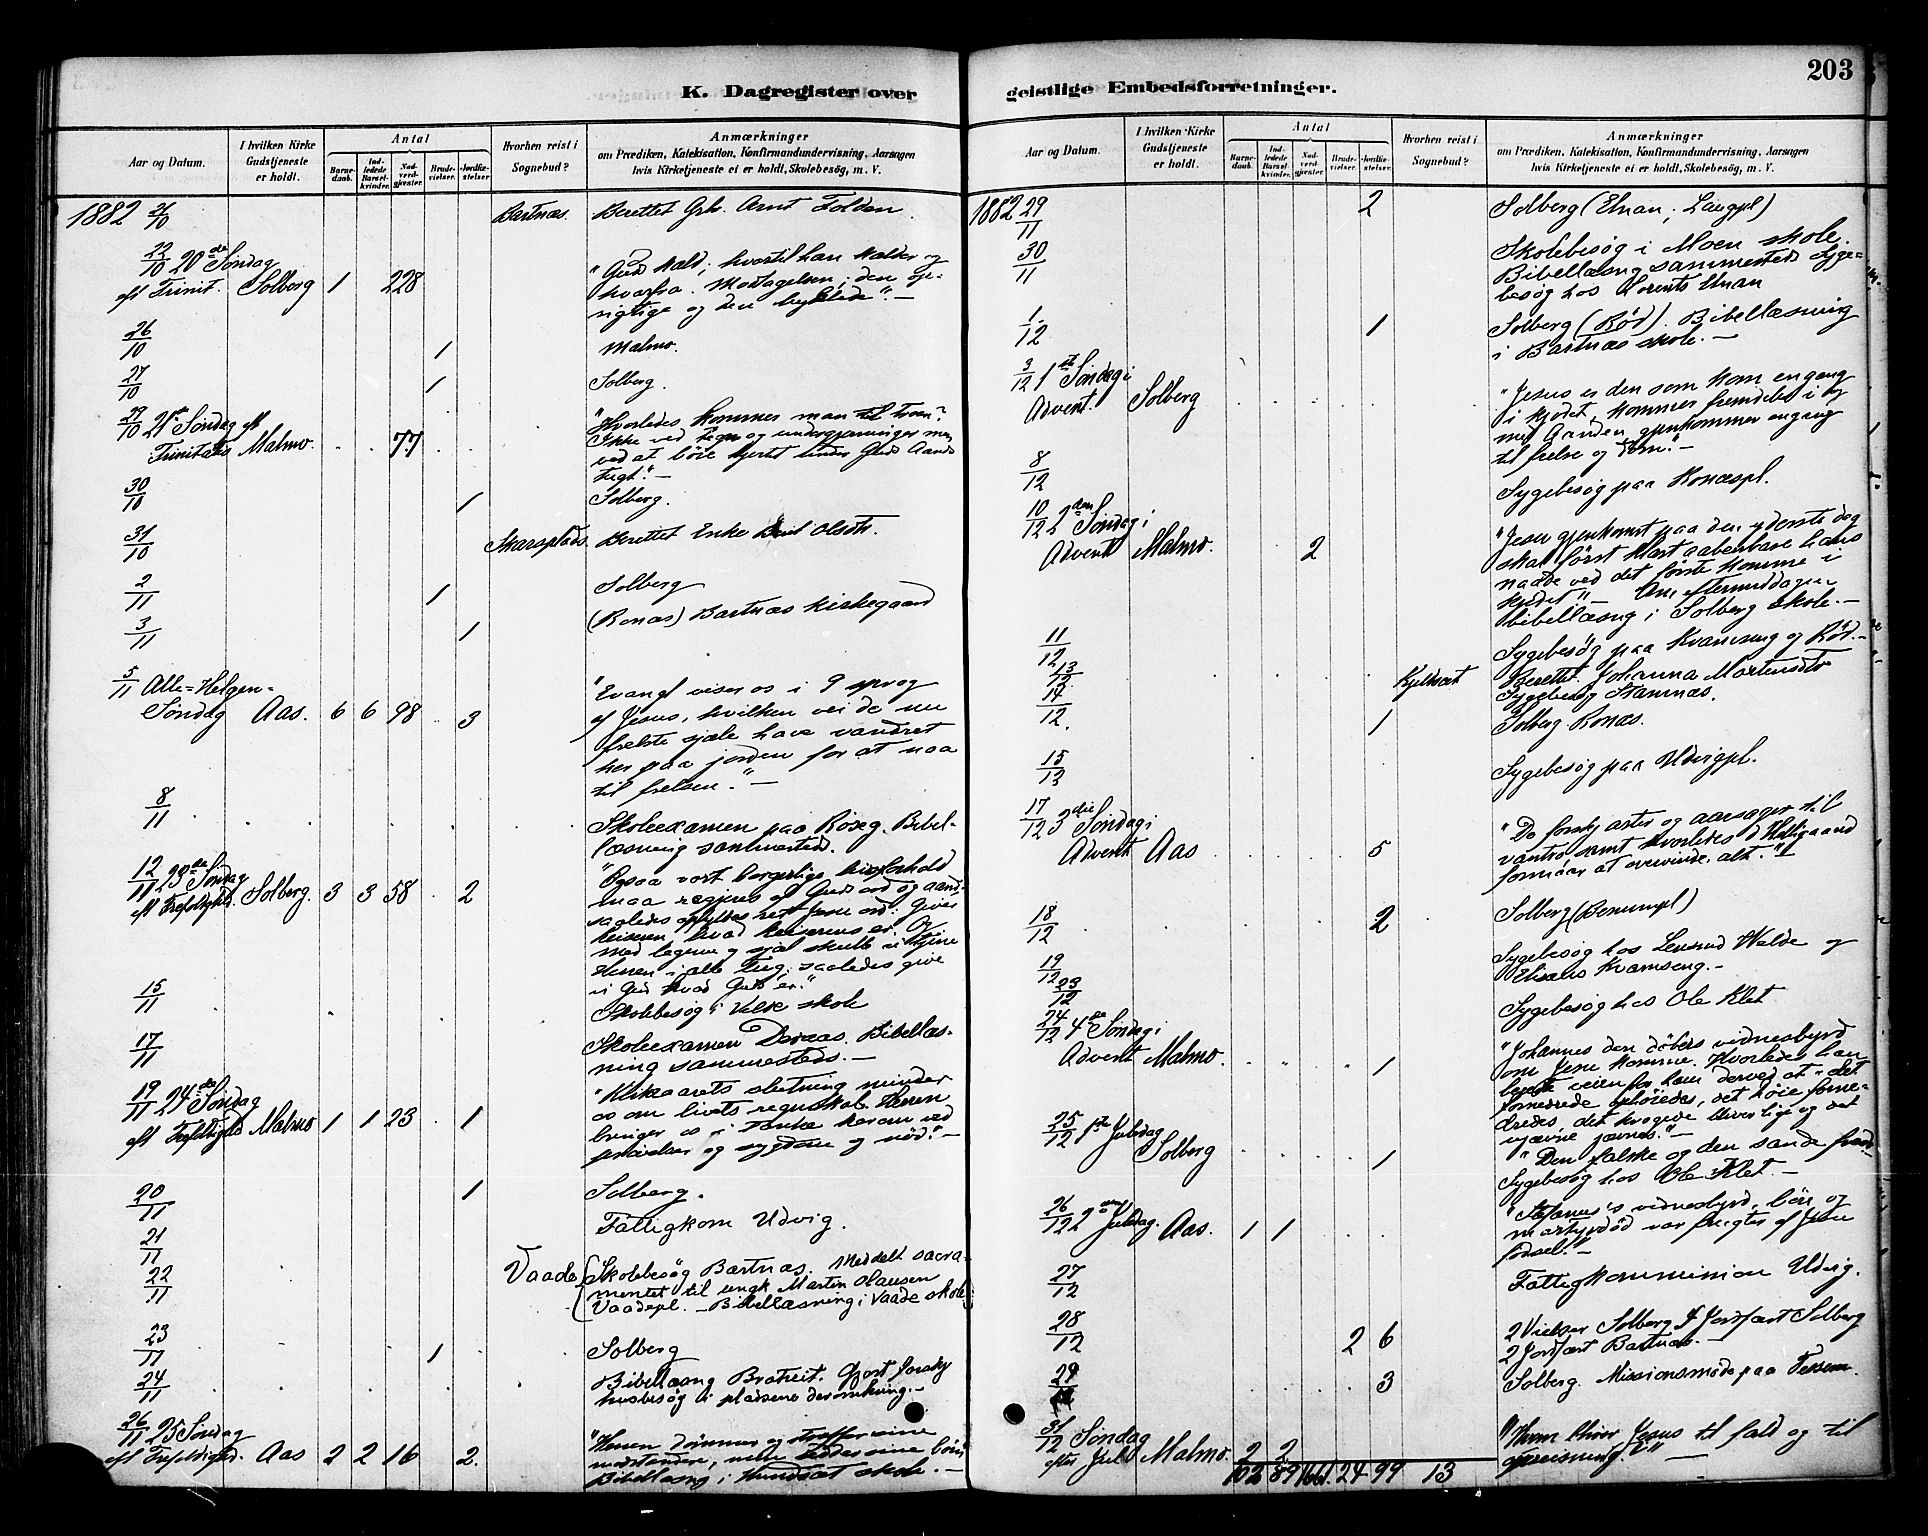 K. Dagregister over
Aar og Datum.
I hvilken Kirke Gudstjeneste er holdt.
Antal
Barne-daab.
Ind-ledede Barsel-kvinder.
Nad-verd-gjæster.
Brude-vielser.
Jordfæ-stelser
Hvorhen reist i Sognebud?
Anmærkninger
om Prædiken, Katekisation, Konfirmandundervisning, Aarsagen
hvis Kirketjeneste ei er holdt, Skolebesøg, m. V.
1882 21/10 Bartnæs. Berettet Grb. Arnt Folden.
22/10 20de Søndag
eft Trinit. Solberg 1 228
"Guds kald; hvortil han kalder og
hvorfra. Modtagelsen; den op-
rigtige og den hyklede". —
26/10 1 Malmo.
27/10 1 Solberg.
29/10 21de Søndag eft
Trinitatis Malmo. 77
"Hvorledes kommer man til troen?
Ikke ved tegn og undergjerninger men
ved at böie hjertet under Guds Aands
tugt". —
30/10 1 Solberg.
31/10 Skarsplads. Berettet Enke Olsdtr.
2/11 1 Solberg
3/11 1 (Ronæs) Bartnæs kirkegaard
5/11 Alle-Helgen-
Søndag Aas. 6 6 98 3
"Evangl viser os i 9 sprog
af Jesus, hvilken vei de nu
frelste sjæle have vandret
her paa jorden for at naa
til frelsen." —
8/11 Skoleexamen paa Röseg. Bibel-
læsning sammesteds.
12/11 23de Søndag
eft Trefoldighd. Solberg. 3 3 58 2
"Ogsaa vort borgerlige livsforhold
maa regjeres af Guds ord og aand,
saaledes opfyldes ret Jesu ord: Giver
keiseren hvad keiserens er. Og
med legeme og sjæl skulle vi tjene
Herren i alle Ting; saaledes give
vi Gud hvad Guds er."
15/11 Skolebesøg i skole
17/11 Skoleexamen Deraas. Bibellæs-
ning sammesteds. —
19/11 24de Søndag
eft Trefoldighd Malmo 1 1 23 1
"Kirkeaarets slutning minder
os om livets regnskab. Herren
bringer os i Tanke herom ved
prøvelser og sygdom og nöd." —
20/11 1 Solberg.
21/11 Fattigkom Udvig.
22/11 Vaade Skolebesøg Bartnæs. Meddelt sacra-
mentet til ungk. Martin Olausen
Vaadepl. — Bibellæsning i Vaade skole
23/11 1 Solberg
24/11 Bibellæsng Bratreit. Gjort forskj
husbesøg i pladsene deromkring. —
26/11 25 Søndag
eft Trefoldighed. Aas 2 2 16 2.
"Herren dömmer og straffer sine
modstandere, men
Bibellæsng i skole. —
geistlige Embedsforretninger.
203
Aar og Datum.
I hvilken Kirke Gudstjeneste er holdt.
Antal
Barne-daab.
Ind-ledede Barsel-kvinder.
Nad-verd-gjæster.
Brude-vielser.
Jordfæ-stelser
Hvorhen reist i Sognebud?
Anmærkninger
om Prædiken, Katekisation, Konfirmandundervisning, Aarsagen
hvis Kirketjeneste ei er holdt, Skolebesøg, m. V.
1882 29/11 2 Solberg (Elnan; Langpl)
30/11 Skolebesøg i Moen skole.
Bibellæsng sammesteds Syge-
besøg hos Lorents Elnan
1/12 1 Solberg (Röd). Bibellæsning
i Bartnæs skole. —
3/12 1ste Søndag i
Advent. Solberg
"Jesus er den som kom engang
i kjödet, kommer fremdeles i og
med Aanden, gjenkommer engang
til frelse og dom." —
8/12 Sygebesøg paa Ronæspl.
10/12 2den Søndag i
Advent Malmo. 2
"Jesu gjenkomst paa den yderste dag
skal först klart aabenbare hans
naade ved det förste komme i
kjödet" — Om eftermiddagen
bibellæsng i Solberg skole. —
11/12 Sygebesøg paa Kvamseng og Röd. —
13/12 Berettet Johanna Martinsdtr
Sygebesøg Stamnæs.
14/12 1 Solberg Ronæs.
15/12 Sygebesøg paa Udvigpl.
17/12 3die Søndag i
Advent Aas 5
"De forskj arter og aarsager til
vantro samt hvorledes d Helligaand
formaar at overvinde alt."
18/12 2 Solberg (Benumpl)
19/12 Sygebesøg hos Welde og
Kvamseng. —
23/12 Sygebesøg hos Ole Klet
24/12 4de Søndag i
Advent Malmo. 1
"Johannes den döbers vidnesbyrd
om Jesu komme. Hvorledes han
beredte veien for ham derved at det
fornedrede ophöiedes, det höie forne-
dredes, det krogede bliver lige og det
ujævne jævnes." —
25/12 1ste Juledag
Solberg 1
"Den falske og den sande
Sygebesøg hos Ole Klet —
26/12 2den Juledag. Aas. 1 1
"Stefanus's vidnesbyrd, bön og
martyrdöd var frugter af Jesu
födsel." —
27/12 Fattigkommunion Udvig.
28/12 2 6 2 Vielser Solberg 4 Jordfæst Solberg
2 Jordfæst Bartnæs. —
29/12 3 Solberg. Missionsmöde paa Tessem.
31/12 Søndag
efter Jul Malmo. 2 2
"Hvem bliver Jesus til fald og til
opreisning?" —
102 89 1661 24 99 13